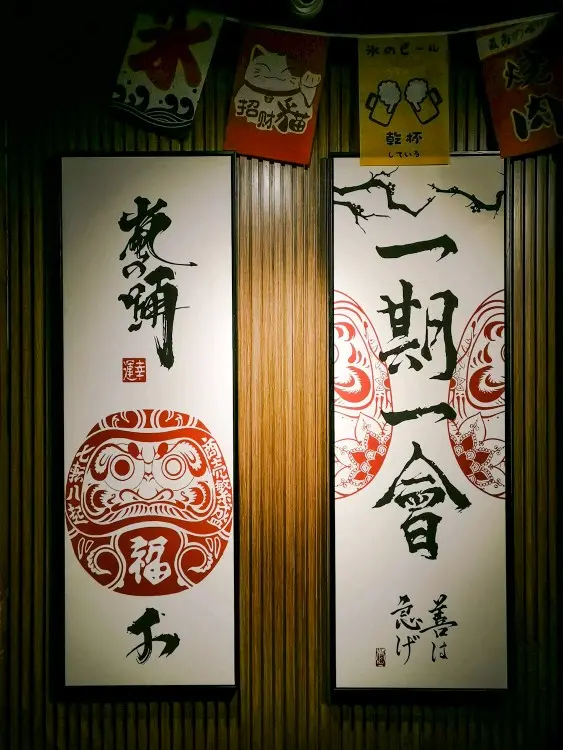 氷
招财猫
氷のビール
乾杯
している
焼肉
幸運
商売繁盛
七転八起
福
一期一會
善は
急げ